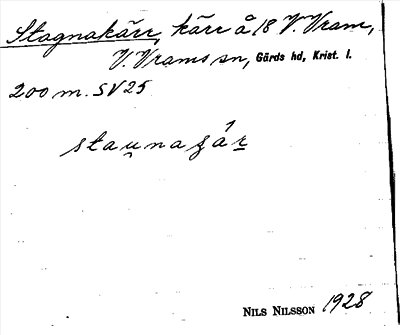 Stagnakärr, kärr å 18 V. Vram,
V. Vrams sn, Gärds hd, Krist. l.
200 m. SV 25
stau̯naʒár
NILS NILSSON 1928